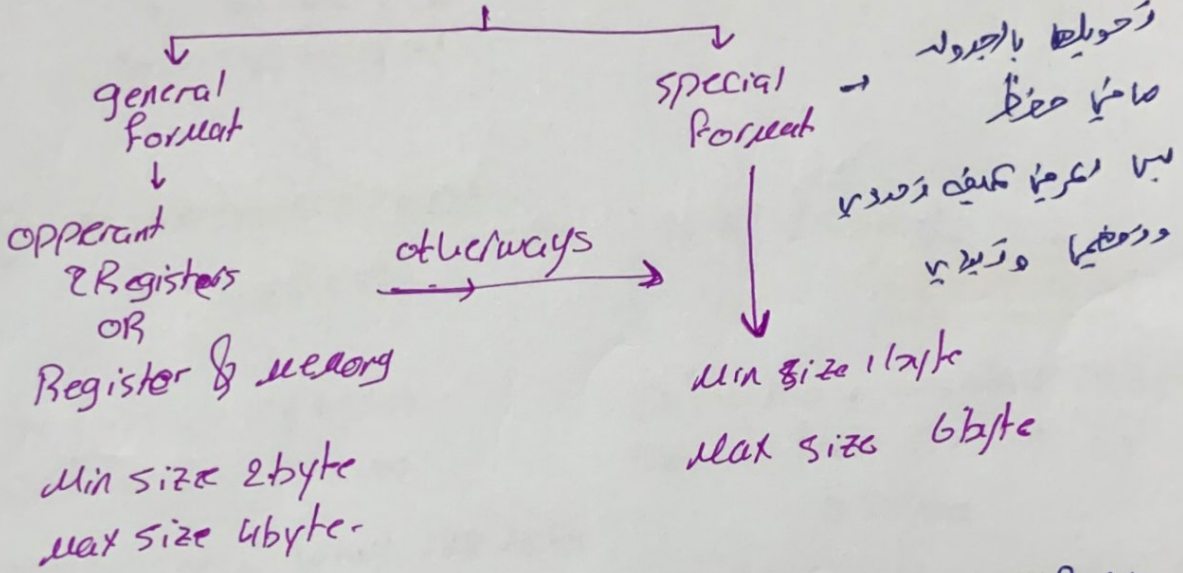 general
format
opperant
2 Registers
OR
Register & memory
Min size 2 byte
Max size 4 byte.
otherways
special
format
Min size 1 byte
Max size 6 byte
تحويلها بالجدول
مافي حفظ
بس تعرفي كيف تحددي